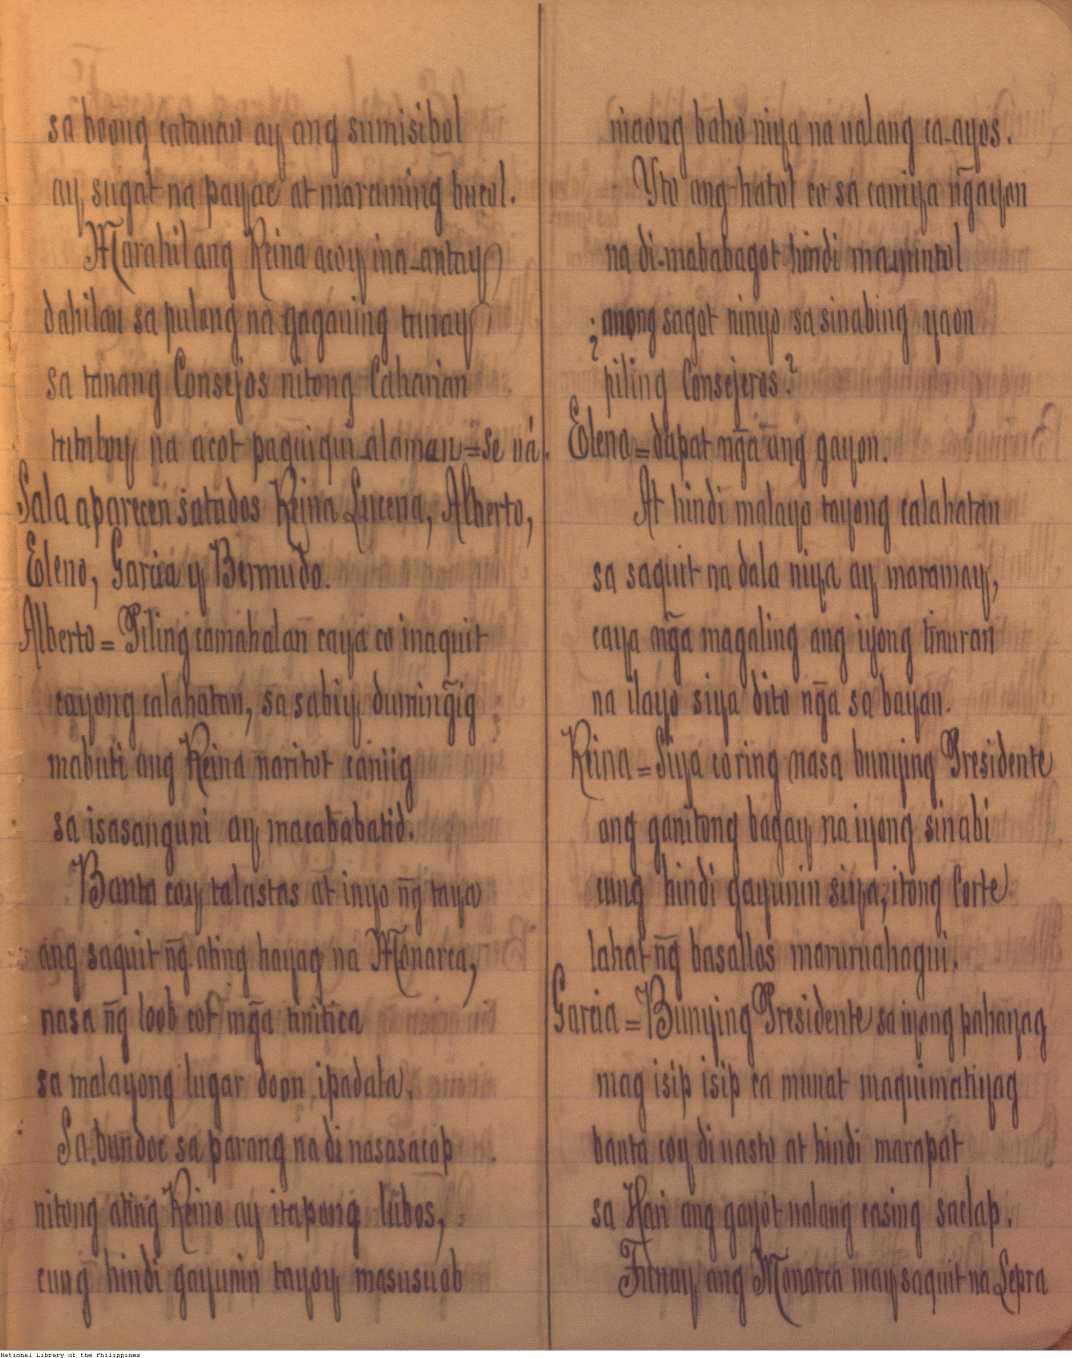 sa boong catauan ay ang sumisibol
ay sugat na payac at maraming bucol.
Marahil ang Reina acoy ina-antay
dahilan sa pulong na gagauing tunay
sa tanang Consejos nitong Caharian
tutuloy na acot paquiqui-alaman = Se va.
Sala aparecen satados Reina Lucena, Alberto,
Eleno, Garcia y Bermudo.
Alberto = Piling camahalan caya co inaquit
cayong calahatan, sa sabiy dumingig
mabuti ang Reina naritot caniig
sa isasanguni ay macababatid.
Banta coy talastas at inyo n͠g taya
ang saquit n͠g ating hayag na Monarca,
nasa n͠g loob cot mg̃a tinitica
sa malayong lugar doon ipadala.
Sa bundoc sa parang na di nasasacop
nitong ating Reino ay itapong lubos,
cung hindi gayunin tayoy masusuob
niaong baho niya na ualang ca-ayos.
Yto ang hatol co sa caniya n͠gayon
na di-mababagot hindi mauurintol
¿anong sagot ninyo sa sinabing yaon
piling Consejeros?
Eleno = dapat ng̃a ang gayon.
At hindi malayo tayong calahatan
sa saquit na dala niya ay maramay,
caya ng̃a magaling ang iyong tinuran
na ilayo siya dito ng̃a sa bayan.
Reina = Siya co ring nasa bunying Presidente
ang ganitong bagay na iyong sinabi
cung hindi gayunin siya, itong Corte
lahat n͠g basallos maruruahagui.
Garcia = Bunying Presidente sa iyong pahayag
mag isip isip ca muna't maquimatiyag
banta coy di uasto at hindi marapat
sa Hari ang gayot ualang casing saclap.
Tunay ang Monarca may saquit na Lepra
National Library of the Philippines